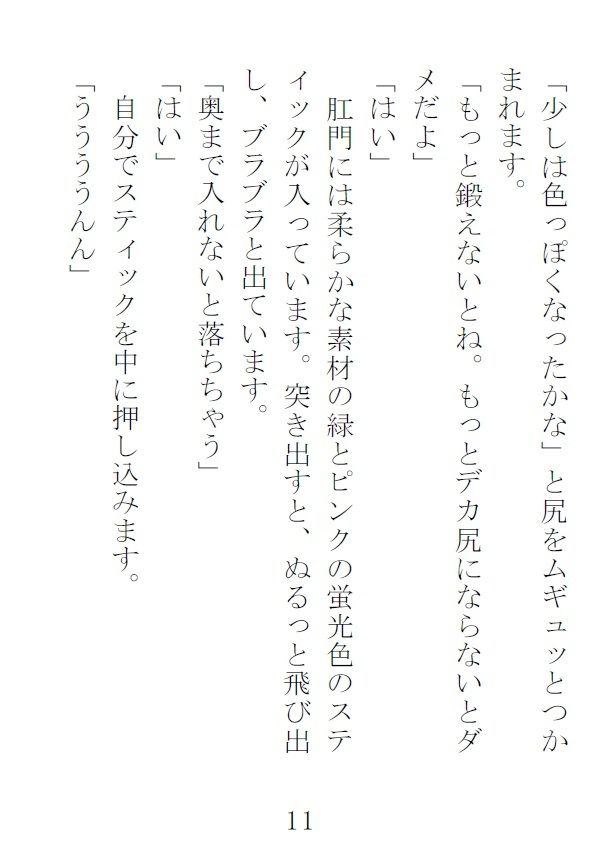 「少しは色っぽくなったかな」と尻をムギュッとつか
まれます。
「もっと鍛えないとね。もっとデカ尻にならないとダ
メだよ」
「はい」
　肛門には柔らかな素材の緑とピンクの蛍光色のステ
ィックが入っています。突き出すと、ぬるっと飛び出
し、ブラブラと出ています。
「奥まで入れないと落ちちゃう」
「はい」
　自分でスティックを中に押し込みます。
「ううううんん」
11